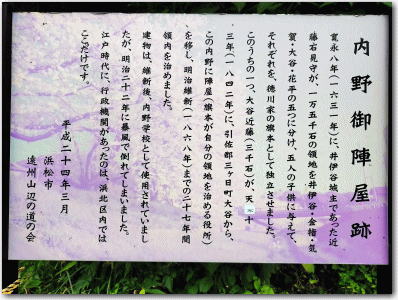 内野御陣屋跡
寛永八年(一六三一年)に、井伊谷城主であった近
藤右見守が、一万五千石の領地を井伊谷・金指・気
賀・大谷・花平の五つに分け、五人の子供に与えて、
それぞれを、徳川家の旗本として独立させました。
このうちの一つ、大谷近藤(三千石)が、天 十
三年(一八四二年)に、引佐郡三ヶ日町大谷から、
この内野に陣屋(旗本が自分の領地を治める役所)
を移し、明治維新(一八六八年)までの二十七年間
領内を治めました。
建物は、維新後、内野学校として使用されていまし
たが、明治二十二年に暴風で倒れてしまいました。
江戸時代に、行政機関があったのは、浜北区内では
ここだけです。
平成二十四年三月
浜松市
遠州山辺の道の会